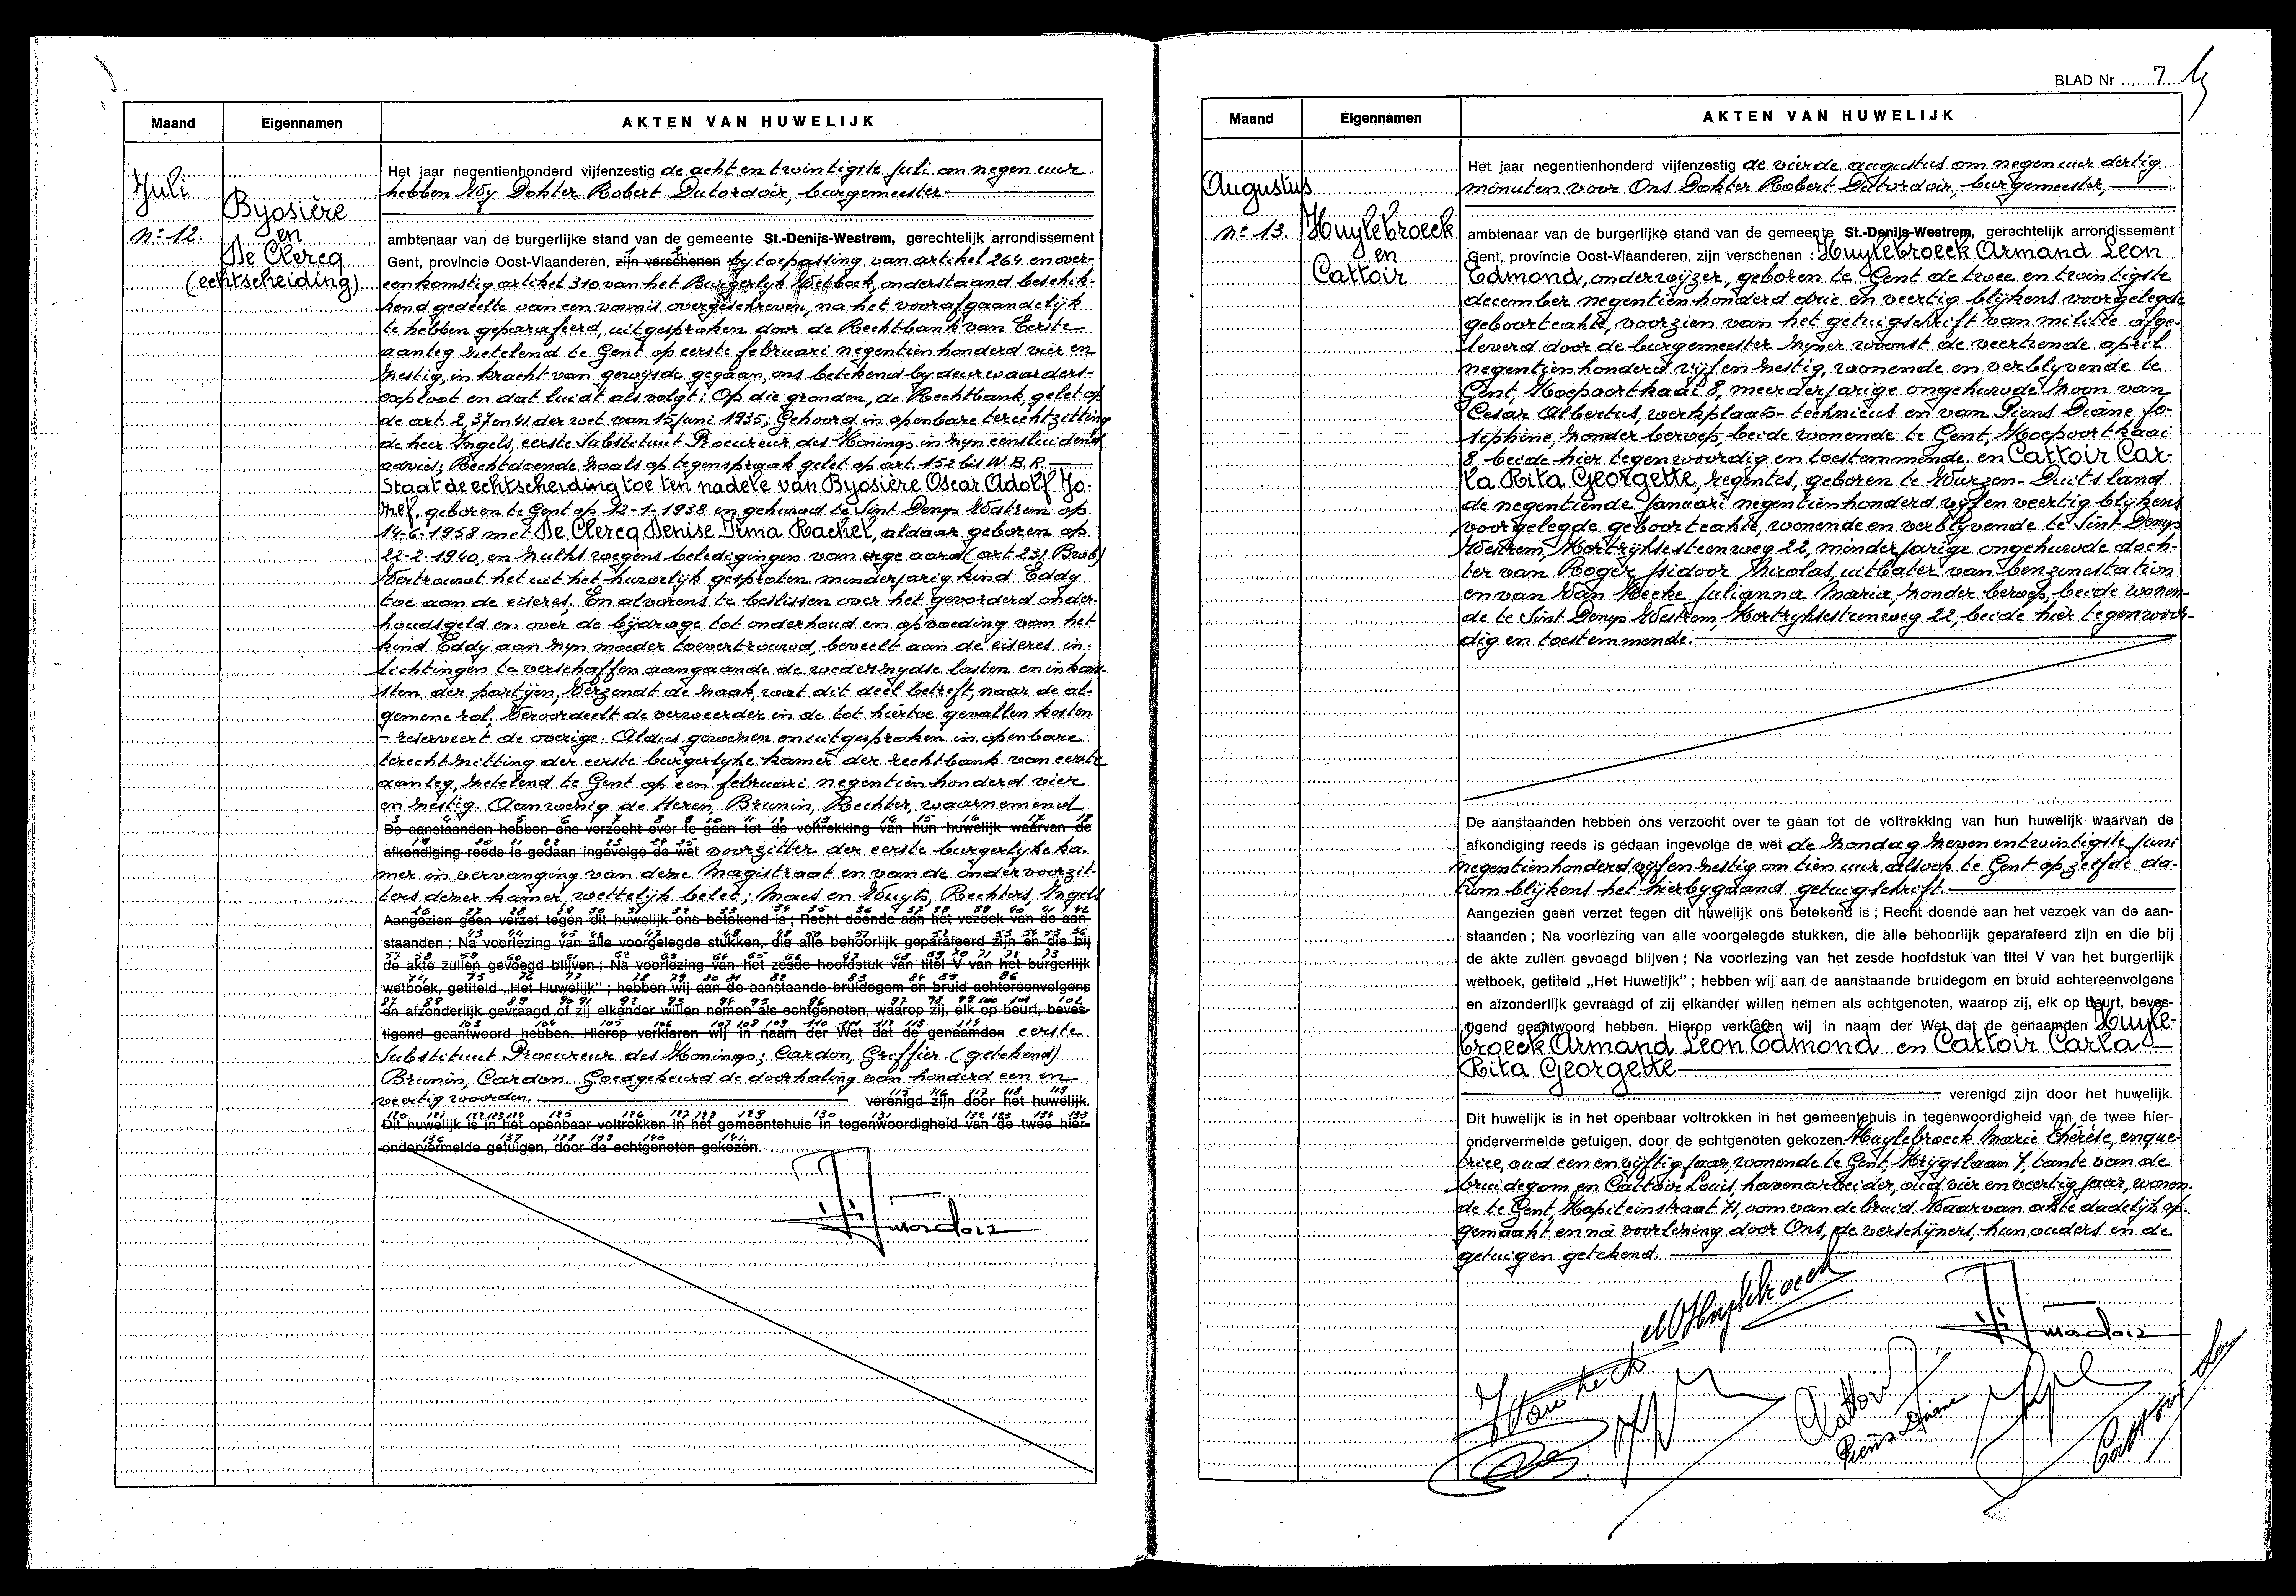 Maand Eigennamen AKTEN VAN HUWELIJK
Juli
n° 12.
Byosière
en
De Clercq
(echtscheiding)
Het jaar negentienhonderd vijfenzestig de acht en twintigste Juli om negen uur
hebben Wy Dokter Robert Dutordoir, burgemeester
ambtenaar van de burgerlijke stand van de gemeente St.-Denijs-Westrem, gerechtelijk arrondissement
Gent, provincie Oost-Vlaanderen, zijn verschenen by toepassing van artikel 264 en over-
eenkomstig artikel 310 van het Burgerlyk Wetboek, onderstaand beschik-
kend gedeelte van een vonnis overgeschreven, na het voorafgaandelijk
te hebben geparafeerd, uitgesproken door de Rechtbank van Eerste
aanleg zetelend te Gent op eerste februari negentienhonderd vier en
zestig, in kracht van gewijsde gegaan, ons betekend by deurwaarders-
exploot en dat luidt als volgt: Op die gronden, de Rechtbank, gelet op
de art. 2, 37 en 41 der wet van 15 juni 1935; Gehoord in openbare terechtzitting
de heer Ingels, eerste Substituut Procureur des Konings in zyn eensluidend
advies; Rechtdoende zoals op tegenspraak gelet op art. 152 bis W.B.R.
Staat de echtscheiding toe ten nadele van Byosière Oscar Adolf Jo-
zef, geboren te Gent op 12-1-1938 en gehuwd te Sint Denys Westrem op
14-6-1958 met De Clercq Denise Irma Rachel, aldaar geboren op
22-2-1940, en zulks wegens beledigingen van erge aard (art 231 Bwb)
Vertrouwt het uit het huwelijk gesproten minderjarig kind Eddy
toe aan de eiseres. En alvorens te beslissen over het gevorderd onder-
houdsgeld en over de bijdrage tot onderhoud en opvoeding van het
kind Eddy aan zyn moeder toevertrouwd, beveelt aan de eiseres in-
lichtingen te verschaffen aangaande de wederzydse lasten en inkom-
sten der partijen, Verzendt de zaak, wat dit deel betreft, naar de al-
gemene rol, Veroordeelt de verweerder in de tot hiertoe gevallen kosten
- reserveert de overige. Aldus gewezen en uitgesproken in openbare
terechtzitting der eerste burgerlyke kamer der rechtbank van eerste
aanleg, zetelend te Gent op een februari negentienhonderd vier
en zestig. Aanwezig de Heren Brunin, Rechter, waarnemend
De aanstaanden hebben ons verzocht over te gaan tot de voltrekking van hun huwelijk waarvan de
afkondiging reeds is gedaan ingevolge de wet voorzitter der eerste burgerlyke ka-
mer in vervanging van deze Magistraat en van de ondervoorzit-
ters dezer kamer wettelijk belet; Maus en Wuyts, Rechters, Ingels
Aangezien geen verzet tegen dit huwelijk ons betekend is ; Recht doende aan het vezoek van de aan-
staanden ; Na voorlezing van alle voorgelegde stukken, die alle behoorlijk geparafeerd zijn en die bij
de akte zullen gevoegd blijven ; Na voorlezing van het zesde hoofdstuk van titel V van het burgerlijk
wetboek, getiteld „Het Huwelijk" ; hebben wij aan de aanstaande bruidegom en bruid achtereenvolgens
en afzonderlijk gevraagd of zij elkander willen nemen als echtgenoten, waarop zij, elk op beurt, beves-
tigend geantwoord hebben. Hierop verklaren wij in naam der Wet dat de genaamden eerste
Substituut Procureur des Konings; Cardon, Griffier. (getekend)
Brunin, Cardon. Goedgekeurd de doorhaling van honderd een en
veertig woorden. verenigd zijn door het huwelijk.
Dit huwelijk is in het openbaar voltrokken in het gemeentehuis in tegenwoordigheid van de twee hier-
ondervermelde getuigen, door de echtgenoten gekozen.
BLAD Nr 7
Maand Eigennamen AKTEN VAN HUWELIJK
Augustus
n° 13.
Huylebroeck
en
Cattoir
Het jaar negentienhonderd vijfenzestig de vierde augustus om negen uur dertig
minuten voor Ons Dokter Robert Dutordoir, burgemeester,
ambtenaar van de burgerlijke stand van de gemeente St.-Denijs-Westrem, gerechtelijk arrondissement
Gent, provincie Oost-Vlaanderen, zijn verschenen : Huylebroeck Armand Leon
Edmond, onderwijzer, geboren te Gent de twee en twintigste
december negentienhonderd drie en veertig blijkens voorgelegde
geboorteakte, voorzien van het getuigschrift van militie afge-
leverd door de burgemeester zyner woonst de veertiende april
negentienhonderd vijf en zestig, wonende en verblyvende te
Gent, Koepoortkaai 8, meerderjarige ongehuwde zoon van
Cesar Albertus, werkplaats-technicus en van Piens Diane Jo-
sephine, zonder beroep, beide wonende te Gent, Koepoortkaai
8 beide hier tegenwoordig en toestemmende, en Cattoir Car-
la Rita Georgette, regentes, geboren te Wurzen-Duitsland
de negentiende Januari negentienhonderd vijf en veertig blijkens
voorgelegde geboorteakte, wonende en verblyvende te Sint Denys
Westrem, Kortrijksesteenweg 22, minderjarige ongehuwde doch-
ter van Roger Isidoor Nicolas, uitbater van benzinestation
en van Van Hecke Julianna Maria, zonder beroep, beide wonen-
de te Sint Denys Westrem, Kortrijksesteenweg 22, beide hier tegenwoor-
dig en toestemmende.
De aanstaanden hebben ons verzocht over te gaan tot de voltrekking van hun huwelijk waarvan de
afkondiging reeds is gedaan ingevolge de wet de zondag zeven en twintigste juni
negentienhonderd vijf en zestig om tien uur alsook te Gent op zelfde da-
tum blijkens het hierbygaand getuigschrift.
Aangezien geen verzet tegen dit huwelijk ons betekend is ; Recht doende aan het vezoek van de aan-
staanden ; Na voorlezing van alle voorgelegde stukken, die alle behoorlijk geparafeerd zijn en die bij
de akte zullen gevoegd blijven ; Na voorlezing van het zesde hoofdstuk van titel V van het burgerlijk
wetboek, getiteld „Het Huwelijk" ; hebben wij aan de aanstaande bruidegom en bruid achtereenvolgens
en afzonderlijk gevraagd of zij elkander willen nemen als echtgenoten, waarop zij, elk op beurt, beves-
tigend geantwoord hebben. Hierop verklaren wij in naam der Wet dat de genaamden Huyle-
broeck Armand Leon Edmond en Cattoir Carla
Rita Georgette
verenigd zijn door het huwelijk.
Dit huwelijk is in het openbaar voltrokken in het gemeentehuis in tegenwoordigheid van de twee hier-
ondervermelde getuigen, door de echtgenoten gekozen Huylebroeck Marie Thérèse, enque-
trice, oud een en vijftig jaar, wonende te Gent, Krijgslaan 7, tante van de
bruidegom en Cattoir Louis, havenarbeider, oud vier en veertig jaar, wonen-
de te Gent, Kapiteinstraat 71, oom van de bruid. Waarvan akte dadelijk op-
gemaakt en na voorlezing door Ons, de verschijners, hun ouders en de
getuigen getekend.
Piens Diane